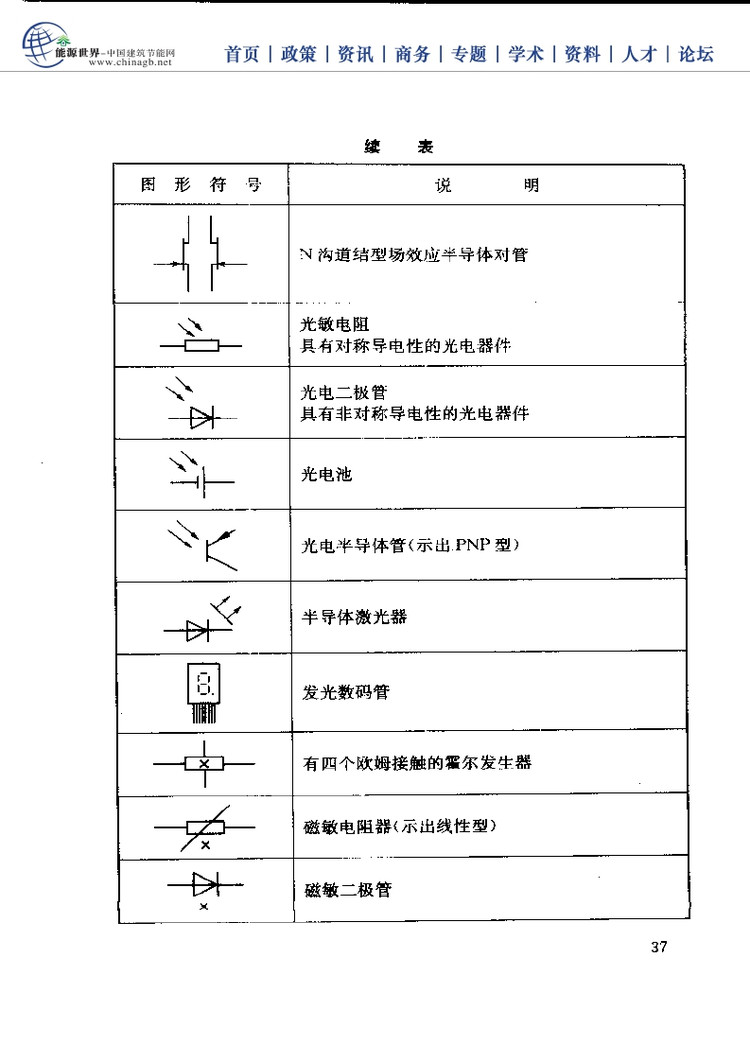 能源世界-中国建筑节能网
www.chinagb.net
首页 | 政策 | 资讯 | 商务 | 专题 | 学术 | 资料 | 人才 | 论坛
续 表
图 形 符 号
说 明
N 沟道结型场效应半导体对管
光敏电阻
具有对称导电性的光电器件
光电二极管
具有非对称导电性的光电器件
光电池
光电半导体管(示出 PNP 型)
半导体激光器
8.
发光数码管
有四个欧姆接触的霍尔发生器
磁敏电阻器(示出线性型)
磁敏二极管
37